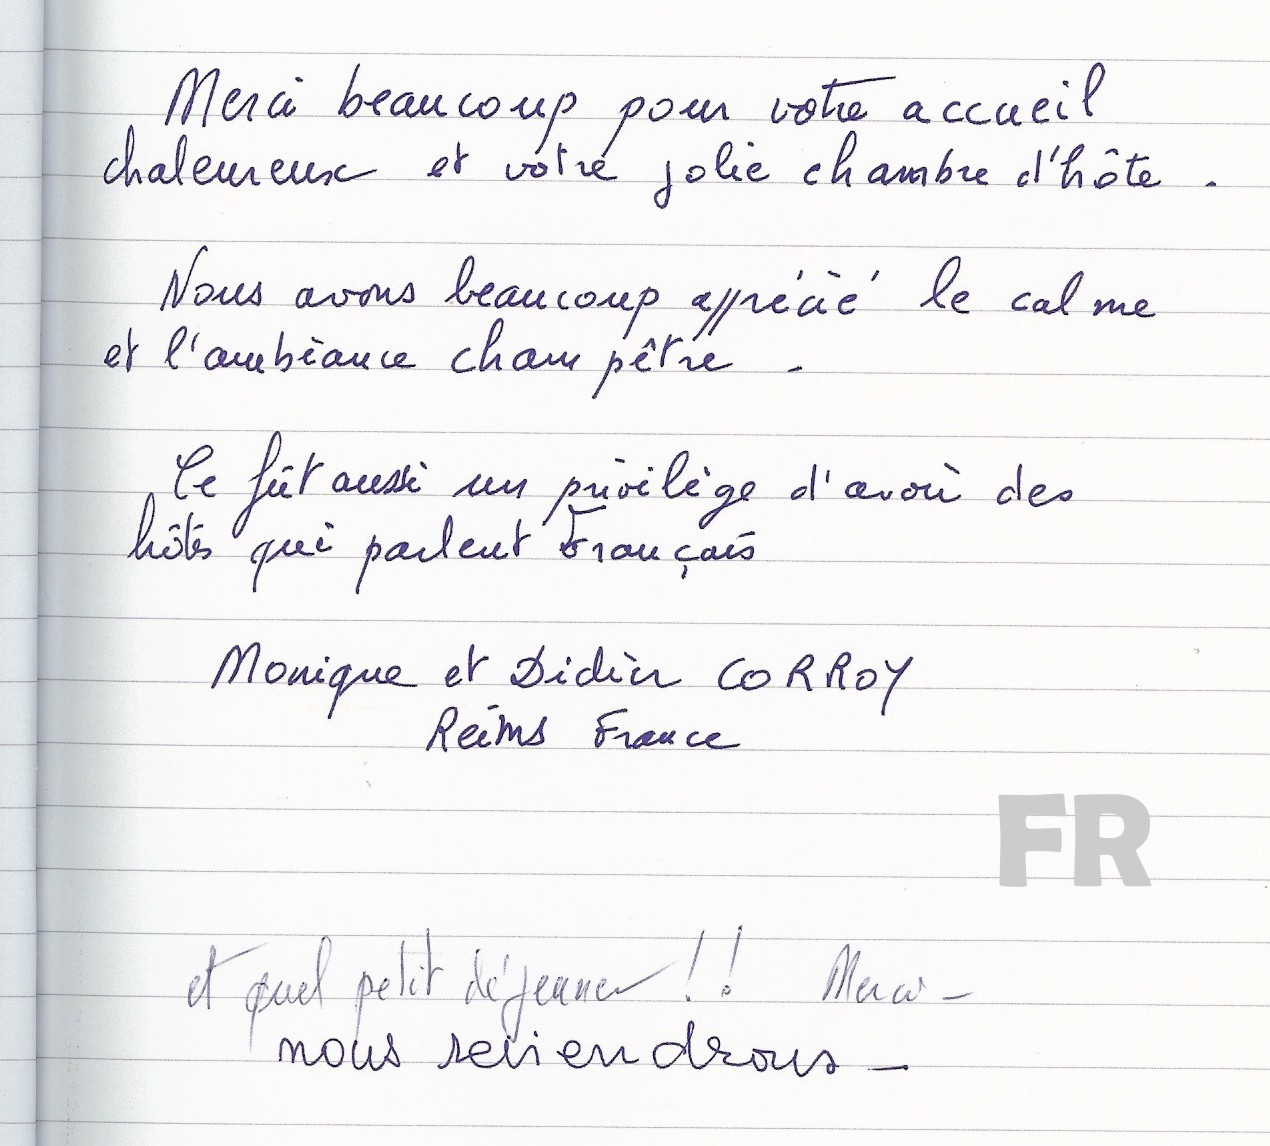 Merci beaucoup pour votre accueil
chaleureux et votre jolie chambre d'hôte.
Nous avons beaucoup apprécié le calme
et l'ambiance champêtre.
Ce fût aussi un privilège d'avoir des
hôtes qui parlent Français
Monique et Didier CORROY
Reims France
FR
et quel petit déjeuner !! Merci -
nous reviendrons -